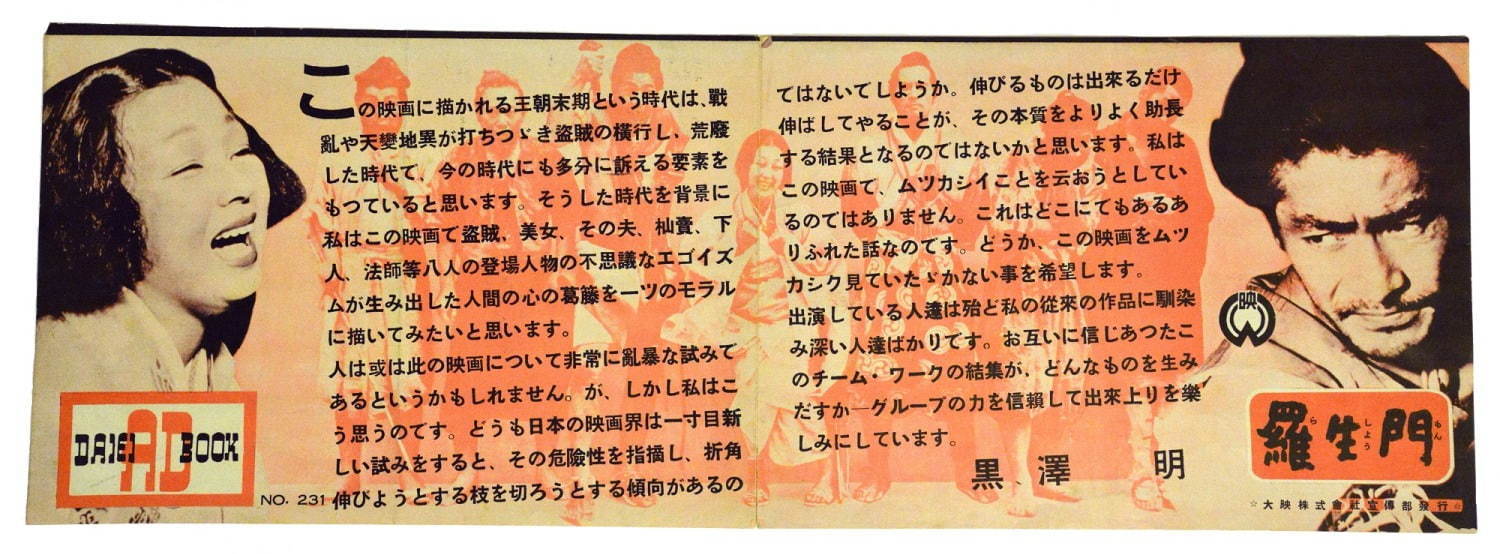 この映画に描かれる王朝末期という時代は、戰
亂や天變地異が打ちつゞき盗賊の横行し、荒廢
した時代て、今の時代にも多分に訴える要素を
もつていると思います。そうした時代を背景に
私はこの映画で盗賊、美女、その夫、杣賣、下
人、法師等八人の登場人物の不思議なエゴイズ
ムが生み出した人間の心の葛藤を一ツのモラル
に描いてみたいと思います。
人は或は此の映画について非常に亂暴な試みで
あるというかもしれません。が、しかし私はこ
う思うのです。どうも日本の映画界は一寸目新
しい試みをすると、その危險性を指摘し、折角
伸びようとする枝を切ろうとする傾向があるの
DAIEI AD BOOK
NO. 231
てはないでしようか。伸びるものは出來るだけ
伸ばしてやることが、その本質をよりよく助長
する結果となるのではないかと思います。私は
この映画で、ムツカシイことを云おうとしてい
るのではありません。これはどこにてもあるあ
りふれた話なのです。どうか、この映画をムツ
カシク見ていたゞかない事を希望します。
出演している人達は殆ど私の從來の作品に馴染
み深い人達ばかりです。お互いに信じあつたこ
のチーム・ワークの結集が、どんなものを生み
だすか—グループの力を信賴して出來上りを樂
しみにしています。
黒澤 明
映
羅生門
ら しよう もん
☆大映株式會社宣傳部發行☆